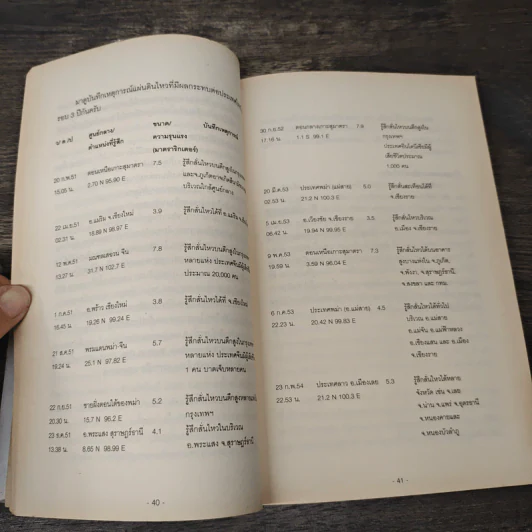 มาดูบันทึกเหตุการณ์แผ่นดินไหวที่มีผลกระทบต่อประเทศไทย
รอบ 3 ปีกันครับ
ว/ด/ป ศูนย์กลาง/ ขนาด/ บันทึกเหตุการณ์
ตำแหน่งที่รู้สึก ความรุนแรง
(มาตราริกเตอร์)
20 ก.พ.51 ตอนเหนือเกาะสุมาตรา 7.5 รู้สึกสั่นไหวบนตึกสูงในกรุงเทพ
15.08 น. 2.70 N 95.90 E
บริเวณใกล้ศูนย์กลาง
22 เม.ย.51 อ.แม่ริม จ.เชียงใหม่ 3.9 รู้สึกสั่นไหวได้ที่ อ.แม่ริม
02.31 น. 18.89 N 98.97 E
12 พ.ค.51 มณฑลเสฉวน จีน 7.8 รู้สึกสั่นไหวบนตึกสูงในกรุงเทพ
13.27 น. 31.7 N 102.7 E หลายแห่ง ประเทศจีนมีผู้เสีย
ประมาณ 20,000 คน
1 ก.ค.51 อ.พร้าว เชียงใหม่ 3.8 รู้สึกสั่นไหวได้ที่ จ.เชียงใหม่
16.45 น. 19.26 N 99.24 E
21 ส.ค.51 พรมแดนพม่า-จีน 5.7 รู้สึกสั่นไหวบนตึกสูงในกรุงเทพ
19.24 น. 25.1 N 97.82 E หลายแห่ง ประเทศจีนมีผู้เสีย
1 คน บาดเจ็บหลายคน
22 ก.ย.51 ชายฝั่งตอนใต้ของพม่า 5.2 รู้สึกสั่นไหวบนตึกสูงใน
20.30 น. 15.7 N 96.2 E กรุงเทพฯ
23 ธ.ค.51 อ.พระแสง สุราษฎร์ธานี 4.1 รู้สึกสั่นไหวในบริเวณ
13.38 น. 8.65 N 98.99 E อ.พระแสง จ.สุราษฎร์ธานี
- 40 -
30 ก.ย.52 ตอนกลางเกาะสุมาตรา 7.9 รู้สึกสั่นไหวบนตึกสูงใน
17.16 น. 1.1 S 99.1 E กรุงเทพฯ
ประเทศอินโดนีเซียมีผู้
เสียชีวิตประมาณ
1,000 คน
20 มี.ค.53 ประเทศพม่า (แม่สาย) 5.0 รู้สึกสั่นสะเทือนได้ที่
02.53 น. 21.2 N 100.3 E จ.เชียงราย
5 เม.ย.53 อ.เวียงชัย จ.เชียงราย 3.5 รู้สึกสั่นไหวบริเวณ
06.42 น. 19.94 N 99.95 E อ.เมือง จ.เชียงราย
9 พ.ค.53 ตอนเหนือเกาะสุมาตรา 7.3 รู้สึกสั่นไหวได้บนอาคาร
19.59 น. 3.59 N 96.04 E สูงบางแห่งใน จ.ภูเก็ต,
จ.พังงา จ.สุราษฎร์ธานี,
จ.สงขลา และ กทม.
6 ก.ค.53 ประเทศพม่า (อ.แม่สาย) 4.5 รู้สึกสั่นไหวได้ทั่วไป
22.23 น. 20.42 N 99.83 E บริเวณ อ.แม่สาย
อ.แม่จัน อ.แม่ฟ้าหลวง
อ.เชียงแสน และ อ.เมือง
จ.เชียงราย
23 ก.พ.54 ประเทศลาว อ.เมืองเลย 5.3 รู้สึกสั่นไหวได้หลาย
22.53 น. 21.2 N 100.3 E จังหวัด เช่น จ.เลย
จ.น่าน จ.แพร่ จ.อุดรธานี
จ.หนองคายและ
จ.หนองบัวลำภู
- 41 -